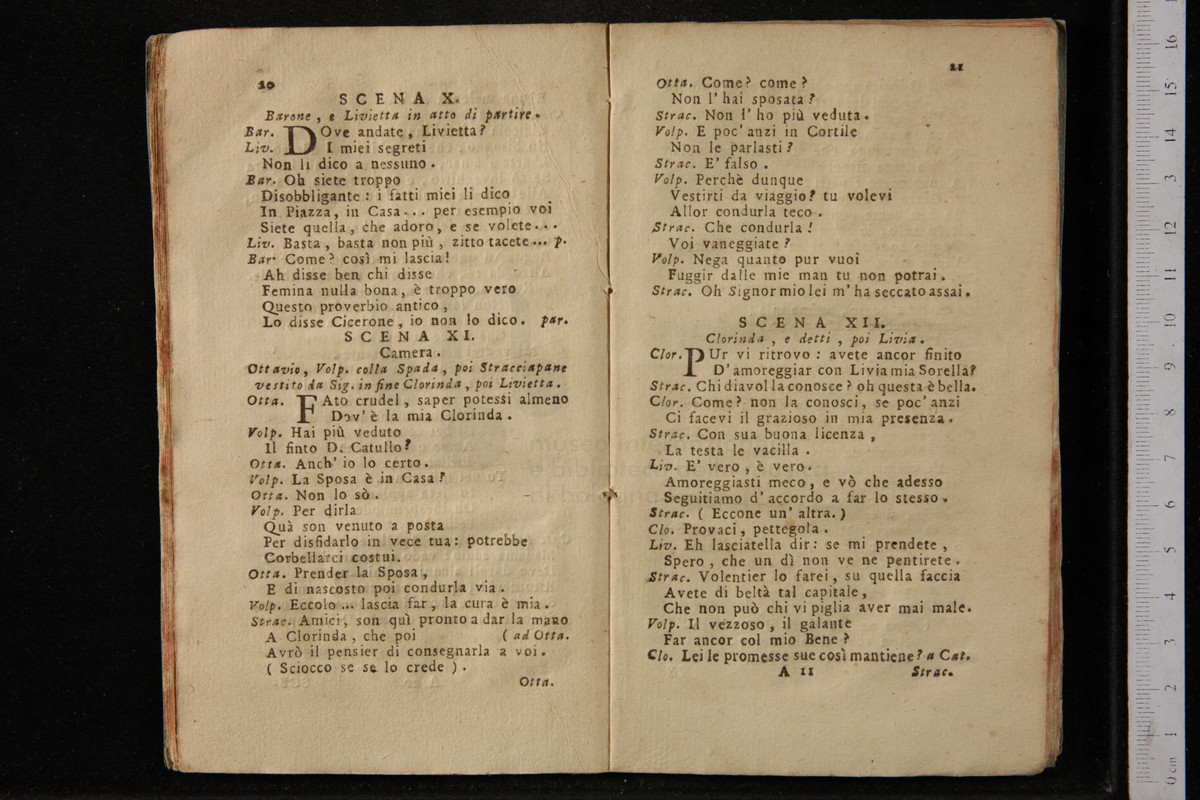 20
SCENA X.
Barone, e Livietta in atto di partire.
Bar. DOve andate, Livietta?
Liv. I miei segreti
Non li dico a nessuno.
Bar. Oh siete troppo
Disobbligante: i fatti miei li dico
In Piazza, in Casa... per esempio voi
Siete quella, che adoro, e se volete...
Liv. Basta, basta non più, zitto tacete... p.
Bar. Come? così mi lascia!
Ah disse ben chi disse
Femina nulla bona, è troppo vero
Questo proverbio antico,
Lo disse Cicerone, io non lo dico. par.
SCENA XI.
Camera.
Ottavio, Volp. colla Spada, poi Stracciapane
vestito da Sig. in fine Clorinda, poi Livietta.
Otta. FAto crudel, saper potessi almeno
Dov' è la mia Clorinda.
Volp. Hai più veduto
Il finto D. Catullo?
Otta. Anch' io lo certo.
Volp. La Sposa è in Casa?
Otta. Non lo sò.
Volp. Per dirla
Quà son venuto a posta
Per disfidarlo in vece tua: potrebbe
Corbellarci costui.
Otta. Prender la Sposa,
E di nascosto poi condurla via.
Volp. Eccolo... lascia far, la cura è mia.
Strac. Amici, son quì pronto a dar la mano
A Clorinda, che poi (ad Otta.
Avrò il pensier di consegnarla a voi.
(Sciocco se se lo crede).
Otta.
21
Otta. Come? come?
Non l' hai sposata?
Strac. Non l' ho più veduta.
Volp. E poc' anzi in Cortile
Non le parlasti?
Strac. E' falso.
Volp. Perchè dunque
Vestirti da viaggio? tu volevi
Allor condurla teco.
Strac. Che condurla!
Voi vaneggiate?
Volp. Nega quanto pur vuoi
Fuggir dalle mie man tu non potrai.
Strac. Oh Signor mio lei m' ha seccato assai.
SCENA XII.
Clorinda, e detti, poi Livia.
Clor. PUr vi ritrovo: avete ancor finito
D' amoreggiar con Livia mia Sorella?
Strac. Chi diavol la conosce? oh questa è bella.
Clor. Come? non la conosci, se poc' anzi
Ci facevi il grazioso in mia presenza.
Strac. Con sua buona licenza,
La testa le vacilla.
Liv. E' vero, è vero.
Amoreggiasti meco, e vò che adesso
Seguitiamo d' accordo a far lo stesso.
Strac. (Eccone un' altra.)
Clo. Provaci, pettegola.
Liv. Eh lasciatella dir: se mi prendete,
Spero, che un dì non ve ne pentirete.
Strac. Volentier lo farei, su quella faccia
Avete di beltà tal capitale,
Che non può chi vi piglia aver mai male.
Volp. Il vezzoso, il galante
Far ancor col mio Bene?
Clo. Lei le promesse sue così mantiene? a Cat.
A 11 Strac.